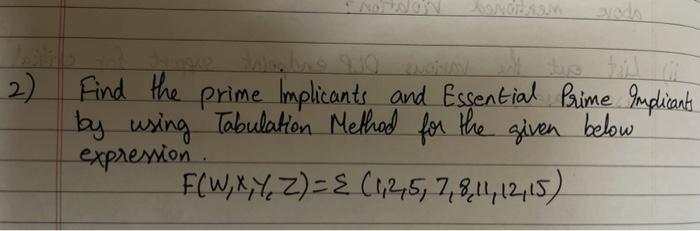 2) Find the prime Implicants and Essential Prime Implicants
by using Tabulation Method for the given below
expression.
F(W,X,Y,Z)=Σ (1,2,5,7,8,11,12,15)